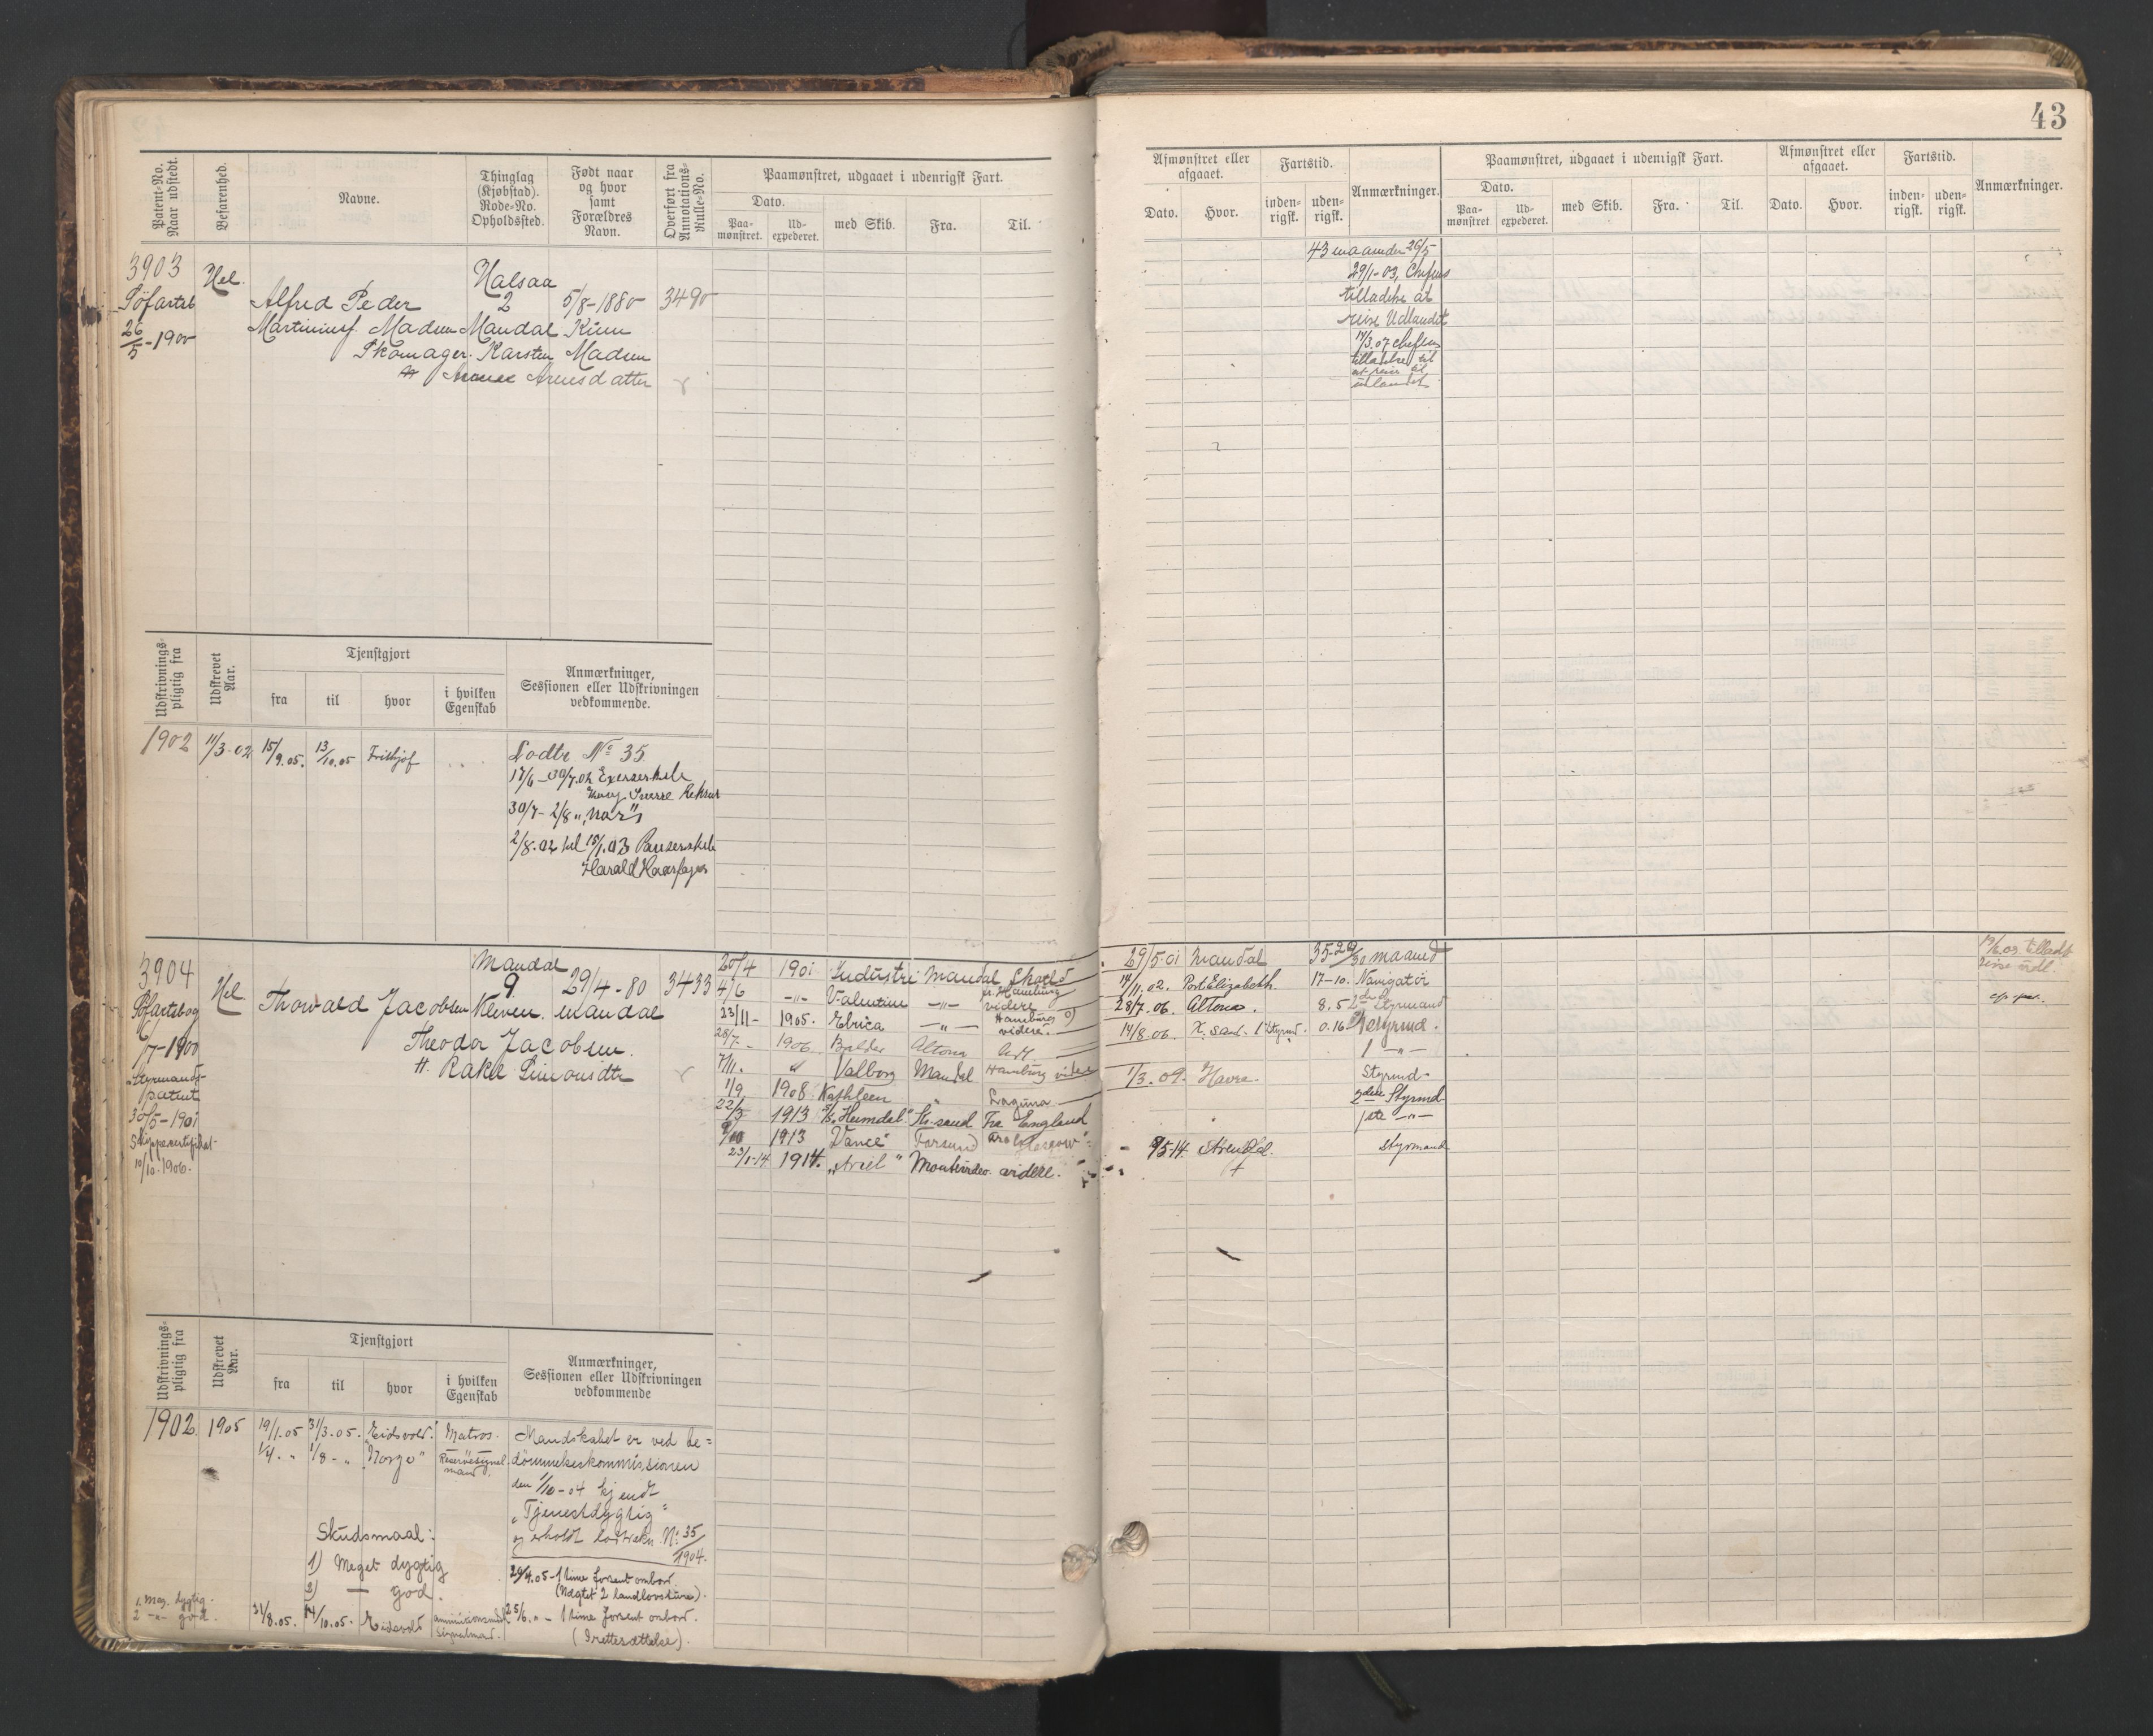 43
Patent-No. Naar udstedt.
Befarenhed.
Navne.
Thinglag (Kjøbstad). Rode-No. Opholdssted.
Født naar og hvor samt Forældres Navn.
Overført fra Annotations-Rulle-No.
Paamønstret, udgaaet i udenrigsk Fart.
Dato.
Paa-mønstret.
Ud-expederet.
med Skib.
Fra.
Til.
Afmønstret eller afgaaet.
Dato.
Hvor.
Fartstid.
inden-rigsk.
uden-rigsk.
Anmærkninger.
Paamønstret, udgaaet i udenrigsk Fart.
Dato.
Paa-mønstret
Ud-expederet.
med Skib.
Fra.
Til.
Afmønstret eller afgaaet.
Dato.
Hvor.
Fartstid.
inden-rigsk.
uden-rigsk.
Anmærkninger.
3903
Søfartsb
26/5-1900
Hel.
Halsaa
Alfred Peder 2 5/8-1880 3490
Martinius Madsen Mandal
Skomager Karsten Madsen
Arnesdatter
43 maaneder 26/5
29/1-03, Chefens
tilladelse at
reise Udlandet
17/3.07 chefens
tilladelse til
at reise til
udlandet
Udskrivnings-pligtig fra
Udskrevet Aar.
Tjenstgjort
fra
til
hvor
i hvilken Egenskab
Anmærkninger, Sessionen eller Udskrivningen vedkommende.
1902 11/3.02 15/9.05. 13/10.05 Frithjof
Lodtr No 35
17/6-30/7.02 Exerserskole
30/7-2/8 " "Nor"
2/8.02 til 15/1.03 Panserskib
Harald Haarfagre
3904
Søfartsbog
6/7-1900
Styrmands-
patent
30/5-1901
Skippercertifikat
10/10.1906.
Hel
Mandal
9 29/4-80 3433
Thorvald Jacobsen Kleven Mandal
Theodor Jacobsen
H. Rakel Simonsdtr
20/4 1901 Industri Mandal
4/6 -"- Valentine -"- fr. Hamburg videre
23/11- 1905. Erica -"- Hamburg videre.
28/7. 1906. Balder Altona
7/11. " Valborg Mandal Hamburg videre
1/9 1908 Kathleen " Laguna
22/3 1913 "Heimdal" Kr.sand Fra England
9/10 1913 "Vance" Farsund
23/1-14 1914. "Ariel" Montevideo videre.
29/5-01 Mandal 35-29/30 maaned
14/11.02. Port Elizabeth. 17-10. Navigatör
28/7.06. Altona. 8.5 2den Styrmand
14/8.06. K. sand. 1 Styrmd. 0.16 Styrmd.
1 -"-
1/3.09. Havre. Styrmd-
2den Styrmd.
1ste -"-
9/5-14 Styrmand
Udskrivnings-pligtig fra
Udskrevet Aar.
Tjenstgjort
fra
til
hvor
i hvilken Egenskab
Anmærkninger, Sessionen eller Udskrivningen vedkommende
1902 1905 19/1.05 31/3.05. "Eidsvold" Matros.
1/4. " 1/8-" "Norge" Reservesignalmand
Mandskabet er ved be=
dömmelseskommissionen
den 1/10-04 kjendt
"Tjenestdygtig"
og erholdt lodtrekn. No 35/1904.
Skudsmaal:
1) Meget dygtig
2) — god.
29/4.05-1 time forsent ombord
(Nægtet 2 landlovsture).
1. Meg. dygtig.
2 -"- god.
31/8.05. 14/10.05. Eidsvold
25/6. " - 1 time forsent ombord.
(Irettesættelse).